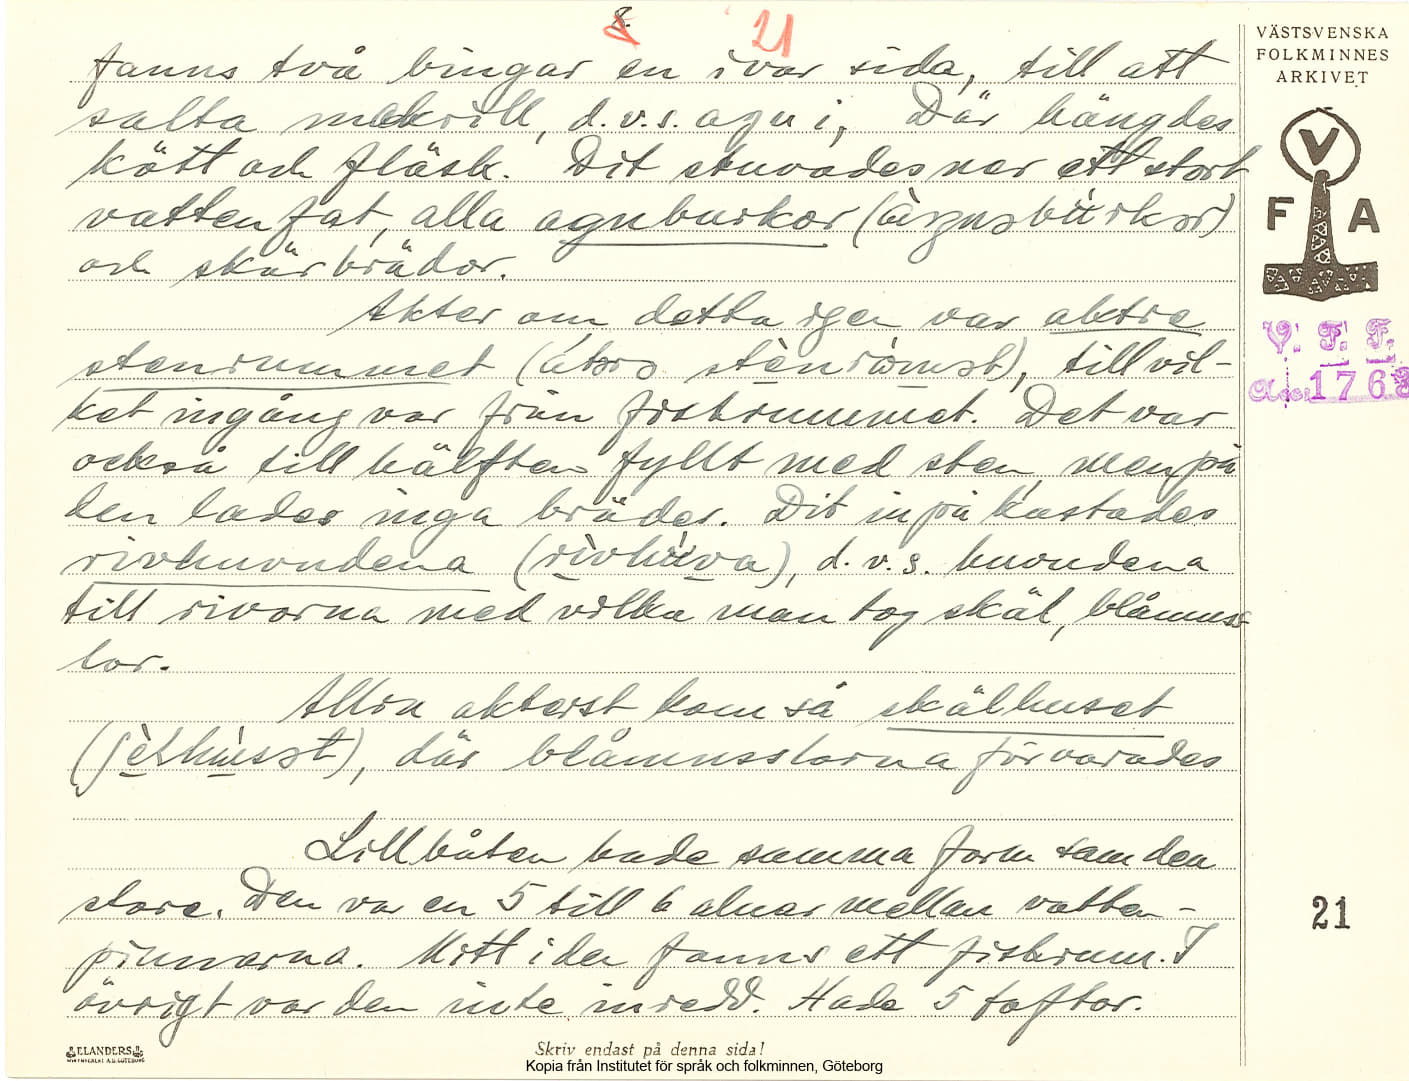 8. 21
VÄSTSVENSKA
FOLKMINNES
ARKIVET
V
F A
V. F. F.
Acc. 1763
fanns två bingar en i var sida, till att
salta makrill, d.v.s. agn i, Där hängdes
kött och fläsk. Dit stuvades ner ett stort
vattenfat, alla agnburkor
och skärbrädor.
Akter om detta igen var aktre
stenrummet, till vil-
ket ingång var från fiskrummet. Det var
också till hälften fyllt med sten, men på
den lades inga bräder. Dit inpå kastades
rivhuvudena, d.v.s. huvudena
till rivorna med vilka man tog skäl, blåmuss-
lor.
Allra akterst kom så skälhuset
där blåmusslorna förvarades
Lillbåten hade samma form som den
store. Den var en 5 till 6 alnar mellan vatten-
pinnarna. Mitt i den fanns ett fiskrum. I
övrigt var den inte inredd. Hade 5 toftor.
21
ELANDERS
Skriv endast på denna sida!
Kopia från Institutet för språk och folkminnen, Göteborg